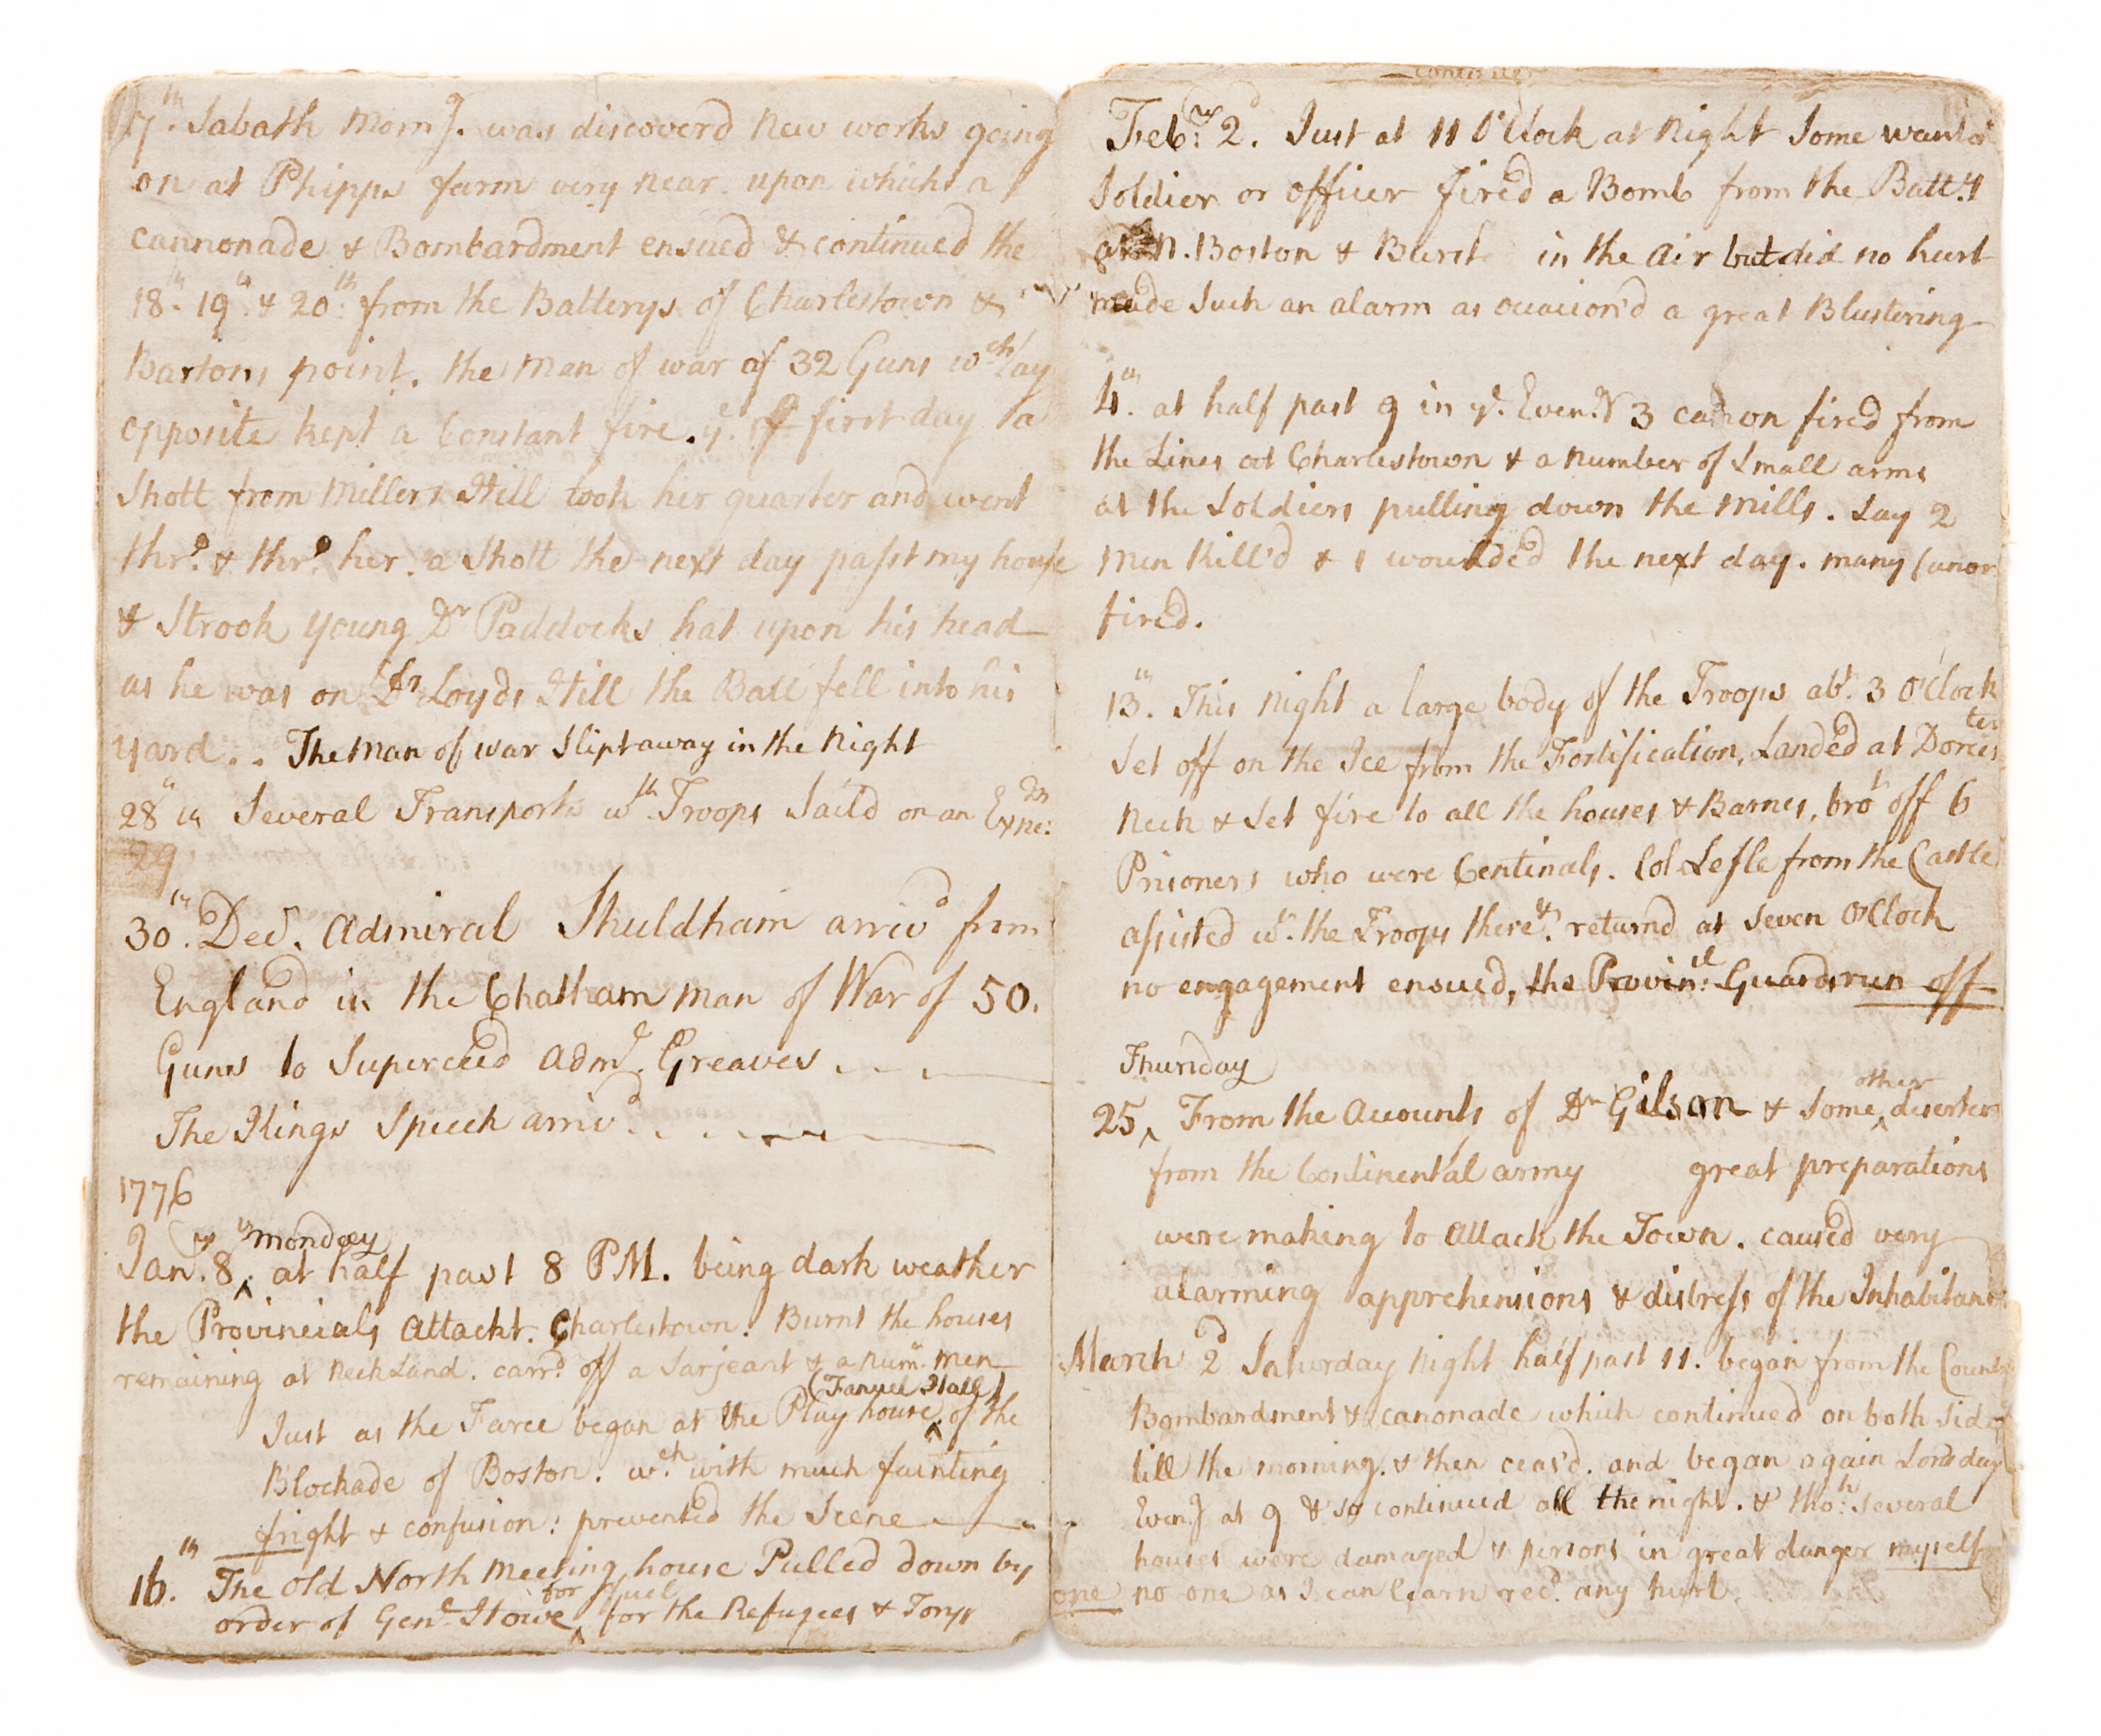 17th. Sabath Morng. was discoverd New works going
on at Phipps farm very near. upon which a
cannonade & Bombardment ensued & continued the
18th. 19th. & 20th. from the Batterys of Charlestown &
Bartons point. the Man of war of 32 Guns wch lay
opposite kept a Constant fire. ye. first day a
Shott from Millers Hill took her quarter and went
thro. & thro. her. a Shott the next day passt my house
& Strook young Dr Paddocks hat upon his head
as he was on Dr Loyds Hill the Ball fell into his
yard.. The Man of war Slipt away in the Night
28th in Several Transports wth. Troops Sail'd on an Expe:dn
29
30th. Decr. Admiral Shuldham arriv'd from
England in the Chatham Man of War of 50.
Guns to Superceed Adml. Greaves . . .
The Kings Speech arriv'd . . . .
1776
Janry. 8th. monday at half past 8 PM. being dark weather
the Provincials Attackt. Charlestown. Burnt the houses
remaining at Neck Land. carrd. off a Sarjeant & a numr. men
Just as the Farce began at the Play house (Fanuel Hall) of the
Blockade of Boston. wch. with much fainting
fright & confusion: prevented the Scene
16.th The Old North Meeting house Pulled down by
order of Genl. Howe for fuel for the Refugees & Torys
Febry: 2d. Just at 11 O'Clock at Night Some wanton
Soldier or officer fired a Bomb from the Batt:y
at N. Boston & Burst in the Air but did no hurt
made Such an alarm as occacion'd a great Blustering
4th. at half past 9 in ye. Eveng 3 cannon fired from
the Lines at Charlestown & a Number of Small arms
at the Soldiers pulling down the Mills. Say 2
Men Kill'd & 1 wounded the next day. many Canon
fired.
13th. This Night a large body of the Troops abt. 3 O'Clock
Set off on the Ice from the Fortification, Landed at Dorcester
Neck & Set fire to all the houses & Barnes, brot off 6
Prisoners who were Centinals. Col Lesle from the Castle
assisted wth. the Troops there &. returnd at Seven O'Clock
no engagement ensued, the Provin:l Guards run off
Thursday
25, From the Accounts of Dr Gilson & Some other deserters
from the Continental army great preparations
were making to Attack the Town. caused very
alarming apprehensions & distress of the Inhabitants
March 2d Saturday Night half past 11. began from the County
Bombardment & canonade which continued on both Sides
till the morning. & then ceas'd. and began again Lords day
Eveng at 9 & so continued all the night. & tho:h Several
houses were damaged & persons in great danger myself
one no one as I can learn recd. any hurt.